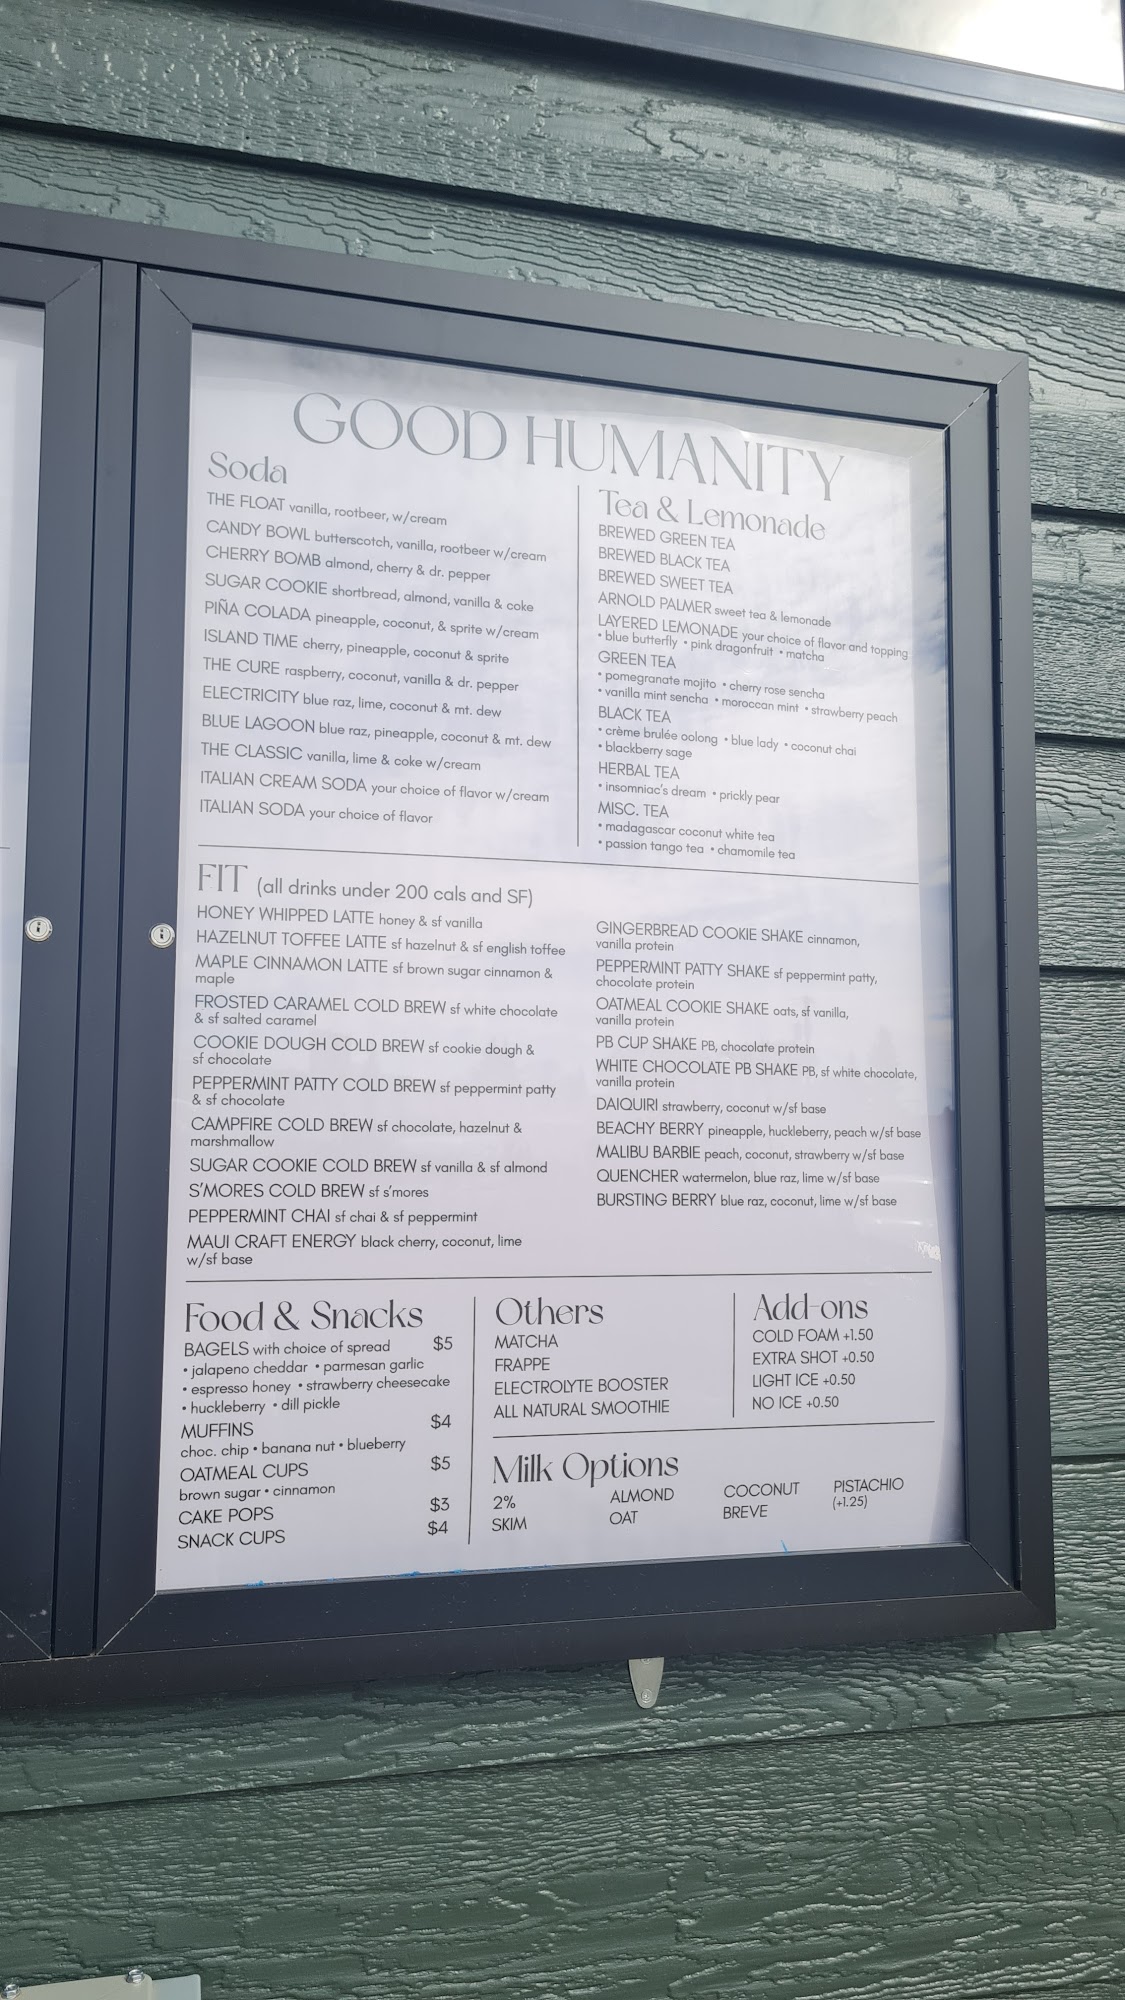 GOOD HUMANITY
Soda
THE FLOAT vanilla, rootbeer, w/cream
CANDY BOWL butterscotch, vanilla, rootbeer w/cream
CHERRY BOMB almond, cherry & dr. pepper
SUGAR COOKIE shortbread, almond, vanilla & coke
PIÑA COLADA pineapple, coconut, & sprite w/cream
ISLAND TIME cherry, pineapple, coconut & sprite
THE CURE raspberry, coconut, vanilla & dr. pepper
ELECTRICITY blue raz, lime, coconut & mt. dew
BLUE LAGOON blue raz, pineapple, coconut & mt. dew
THE CLASSIC vanilla, lime & coke w/cream
ITALIAN CREAM SODA your choice of flavor w/cream
ITALIAN SODA your choice of flavor
Tea & Lemonade
BREWED GREEN TEA
BREWED BLACK TEA
BREWED SWEET TEA
ARNOLD PALMER sweet tea & lemonade
LAYERED LEMONADE your choice of flavor and topping
• blue butterfly • pink dragonfruit • matcha
GREEN TEA
• pomegranate mojito • cherry rose sencha
• vanilla mint sencha • moroccan mint • strawberry peach
BLACK TEA
• crème brulée oolong • blue lady • coconut chai
• blackberry sage
HERBAL TEA
• insomniac's dream • prickly pear
MISC. TEA
• madagascar coconut white tea
• passion tango tea • chamomile tea
FIT (all drinks under 200 cals and SF)
HONEY WHIPPED LATTE honey & sf vanilla
HAZELNUT TOFFEE LATTE sf hazelnut & sf english toffee
MAPLE CINNAMON LATTE sf brown sugar cinnamon &
maple
FROSTED CARAMEL COLD BREW sf white chocolate
& sf salted caramel
COOKIE DOUGH COLD BREW sf cookie dough &
sf chocolate
PEPPERMINT PATTY COLD BREW sf peppermint patty
& sf chocolate
CAMPFIRE COLD BREW sf chocolate, hazelnut &
marshmallow
SUGAR COOKIE COLD BREW sf vanilla & sf almond
S'MORES COLD BREW sf s'mores
PEPPERMINT CHAI sf chai & sf peppermint
MAUI CRAFT ENERGY black cherry, coconut, lime
w/sf base
GINGERBREAD COOKIE SHAKE cinnamon,
vanilla protein
PEPPERMINT PATTY SHAKE sf peppermint patty,
chocolate protein
OATMEAL COOKIE SHAKE oats, sf vanilla,
vanilla protein
PB CUP SHAKE PB, chocolate protein
WHITE CHOCOLATE PB SHAKE PB, sf white chocolate,
vanilla protein
DAIQUIRI strawberry, coconut w/sf base
BEACHY BERRY pineapple, huckleberry, peach w/sf base
MALIBU BARBIE peach, coconut, strawberry w/sf base
QUENCHER watermelon, blue raz, lime w/sf base
BURSTING BERRY blue raz, coconut, lime w/sf base
Food & Snacks
BAGELS with choice of spread $5
• jalapeno cheddar • parmesan garlic
• espresso honey • strawberry cheesecake
• huckleberry • dill pickle
MUFFINS $4
choc. chip • banana nut • blueberry
OATMEAL CUPS $5
brown sugar • cinnamon
CAKE POPS $3
SNACK CUPS $4
Others
MATCHA
FRAPPE
ELECTROLYTE BOOSTER
ALL NATURAL SMOOTHIE
Add-ons
COLD FOAM +1.50
EXTRA SHOT +0.50
LIGHT ICE +0.50
NO ICE +0.50
Milk Options
2% ALMOND COCONUT PISTACHIO
SKIM OAT BREVE (+1.25)